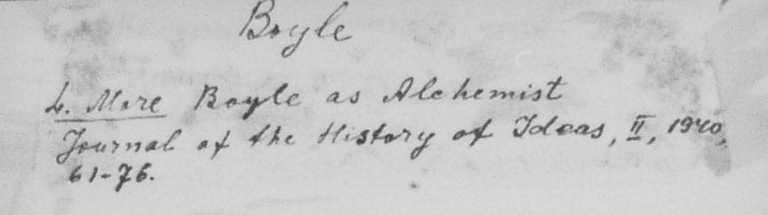 Boyle
L. More Boyle as Alchemist
Journal of the History of Ideas, II, 1940,
61-76.